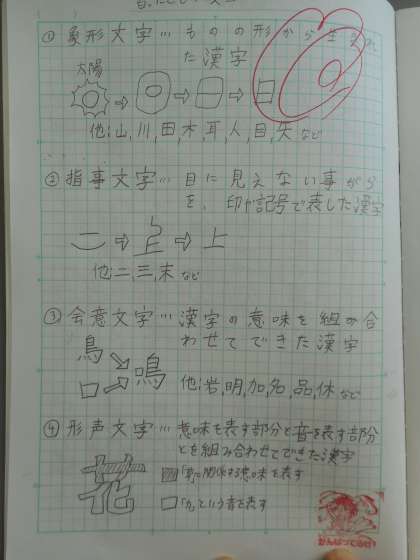 ① 象形文字…ものの形から生まれ
た漢字
太陽
他:山,川,田,木,耳,人,目,矢など
② 指事文字…目に見えない事がら
を、印や記号で表した漢字
二⇨上⇨上
他:二,三,末など
③ 会意文字…漢字の意味を組み合
わせてできた漢字
鳥
口
鳴
他:岩,明,加,名,品,休など
④ 形声文字…意味を表す部分と音を表す部分
とを組み合わせてできた漢字
花
「草」に関係する意味を表す
「カ」という音を表す
がんばってるね!